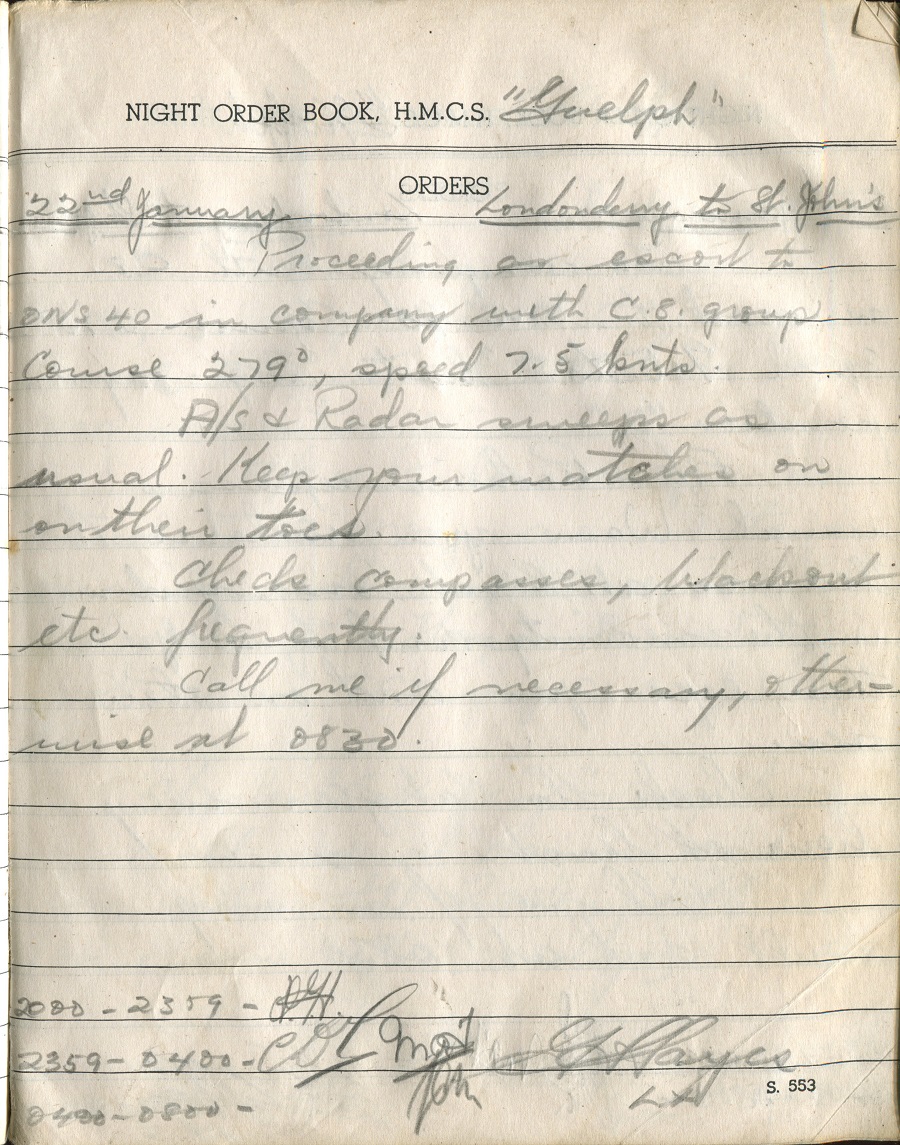 NIGHT ORDER BOOK, H.M.C.S. "Guelph"
ORDERS
22nd January Londonderry to St. John's
Proceeding as escort to
ONS 40 in company with C.8. group
Course 279°, speed 7.5 knts.
A/S & Radar sweeps as
usual. Keep your watches on
on their toes.
Check compasses, blackout
etc. frequently.
Call me if necessary, other-
wise at 0830.
2000-2359-
2359-0400- Hayes
0400-0800-
S. 553